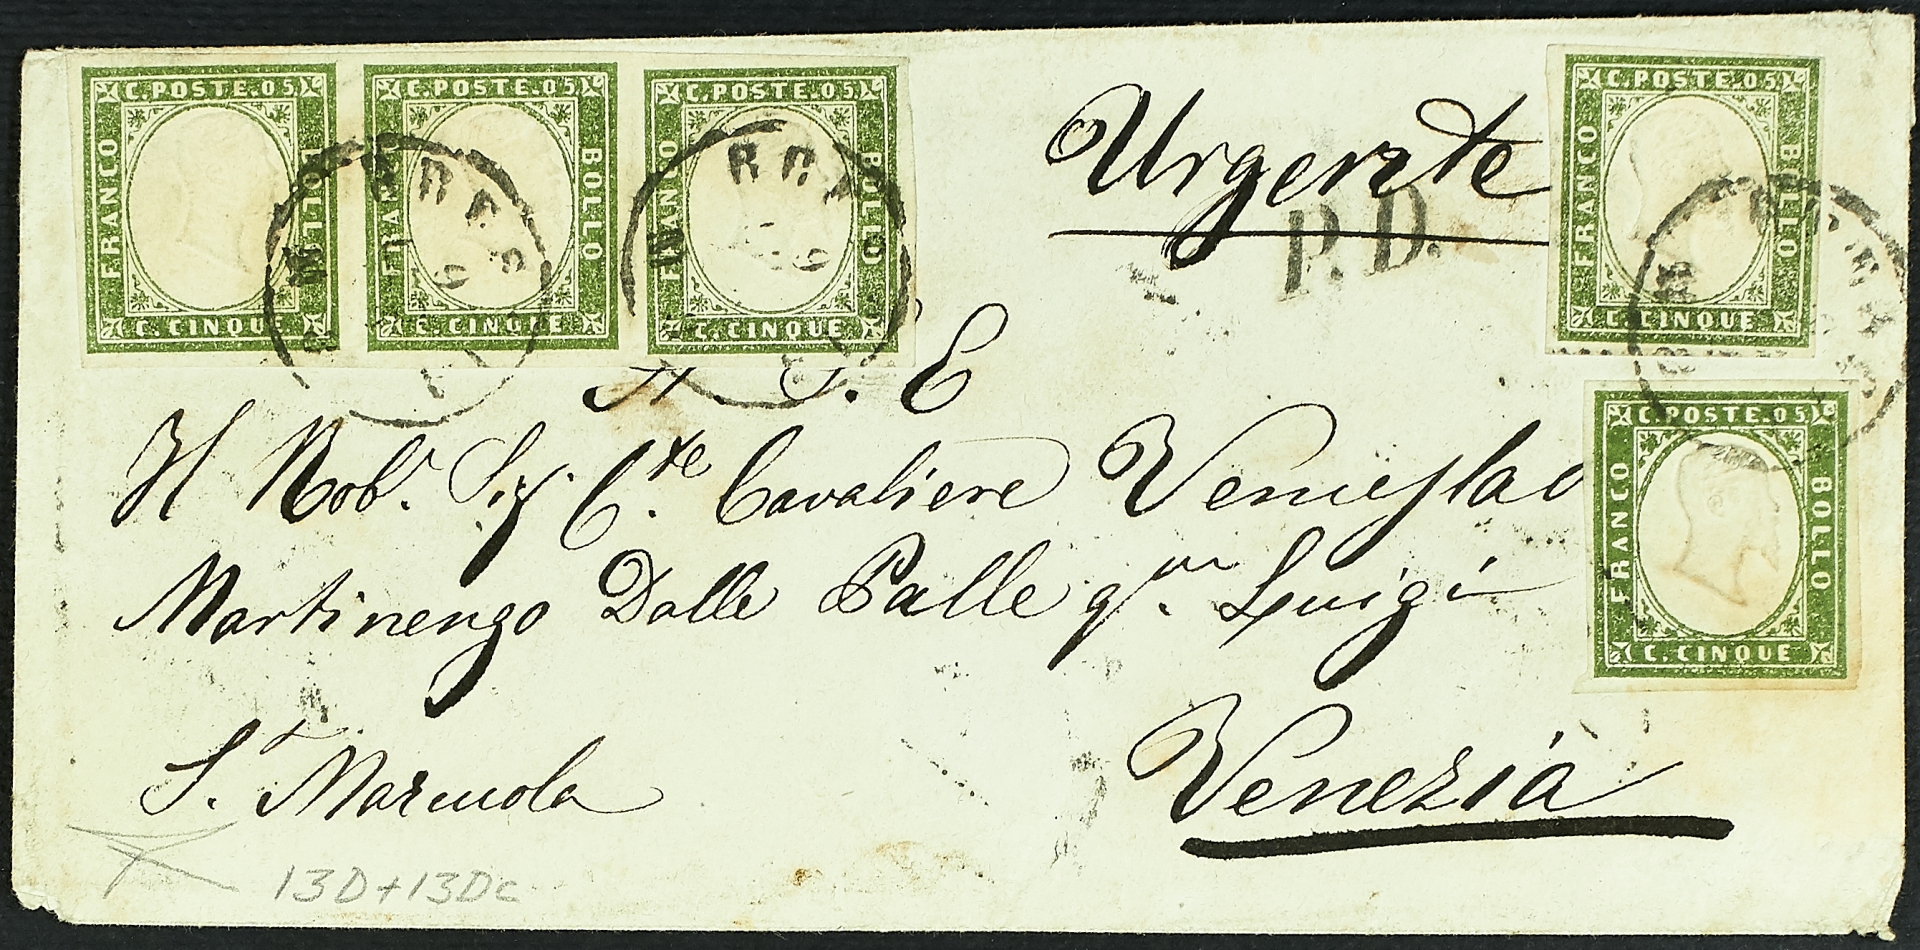 C. POSTE. 05 C. POSTE. 05 C. POSTE. 05
FRANCO BOLLO FRANCO BOLLO FRANCO BOLLO
C. CINQUE C. CINQUE C. CINQUE
Urgente
P.D.
C. POSTE. 05
FRANCO BOLLO
C. CINQUE
C. POSTE. 05
FRANCO BOLLO
C. CINQUE
A S. E
Il Nob.r Sig. C.te Cavaliere Venceslao
Martinengo Dalle Palle q.m Luigi
S.a Marcuola
Venezia
13D+13Dc